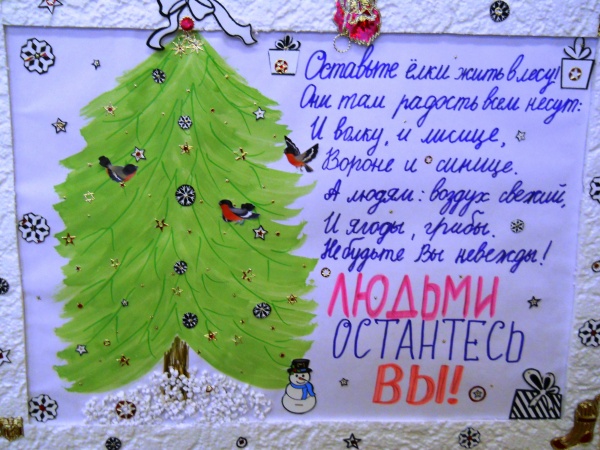 Оставьте ёлки жить в лесу!
Они там радость всем несут:
И волку, и лисице,
Вороне и синице.
А людям: воздух свежий,
И ягоды, грибы.
Не будьте Вы невежды!
ЛЮДЬМИ
ОСТАНТЕСЬ
ВЫ!